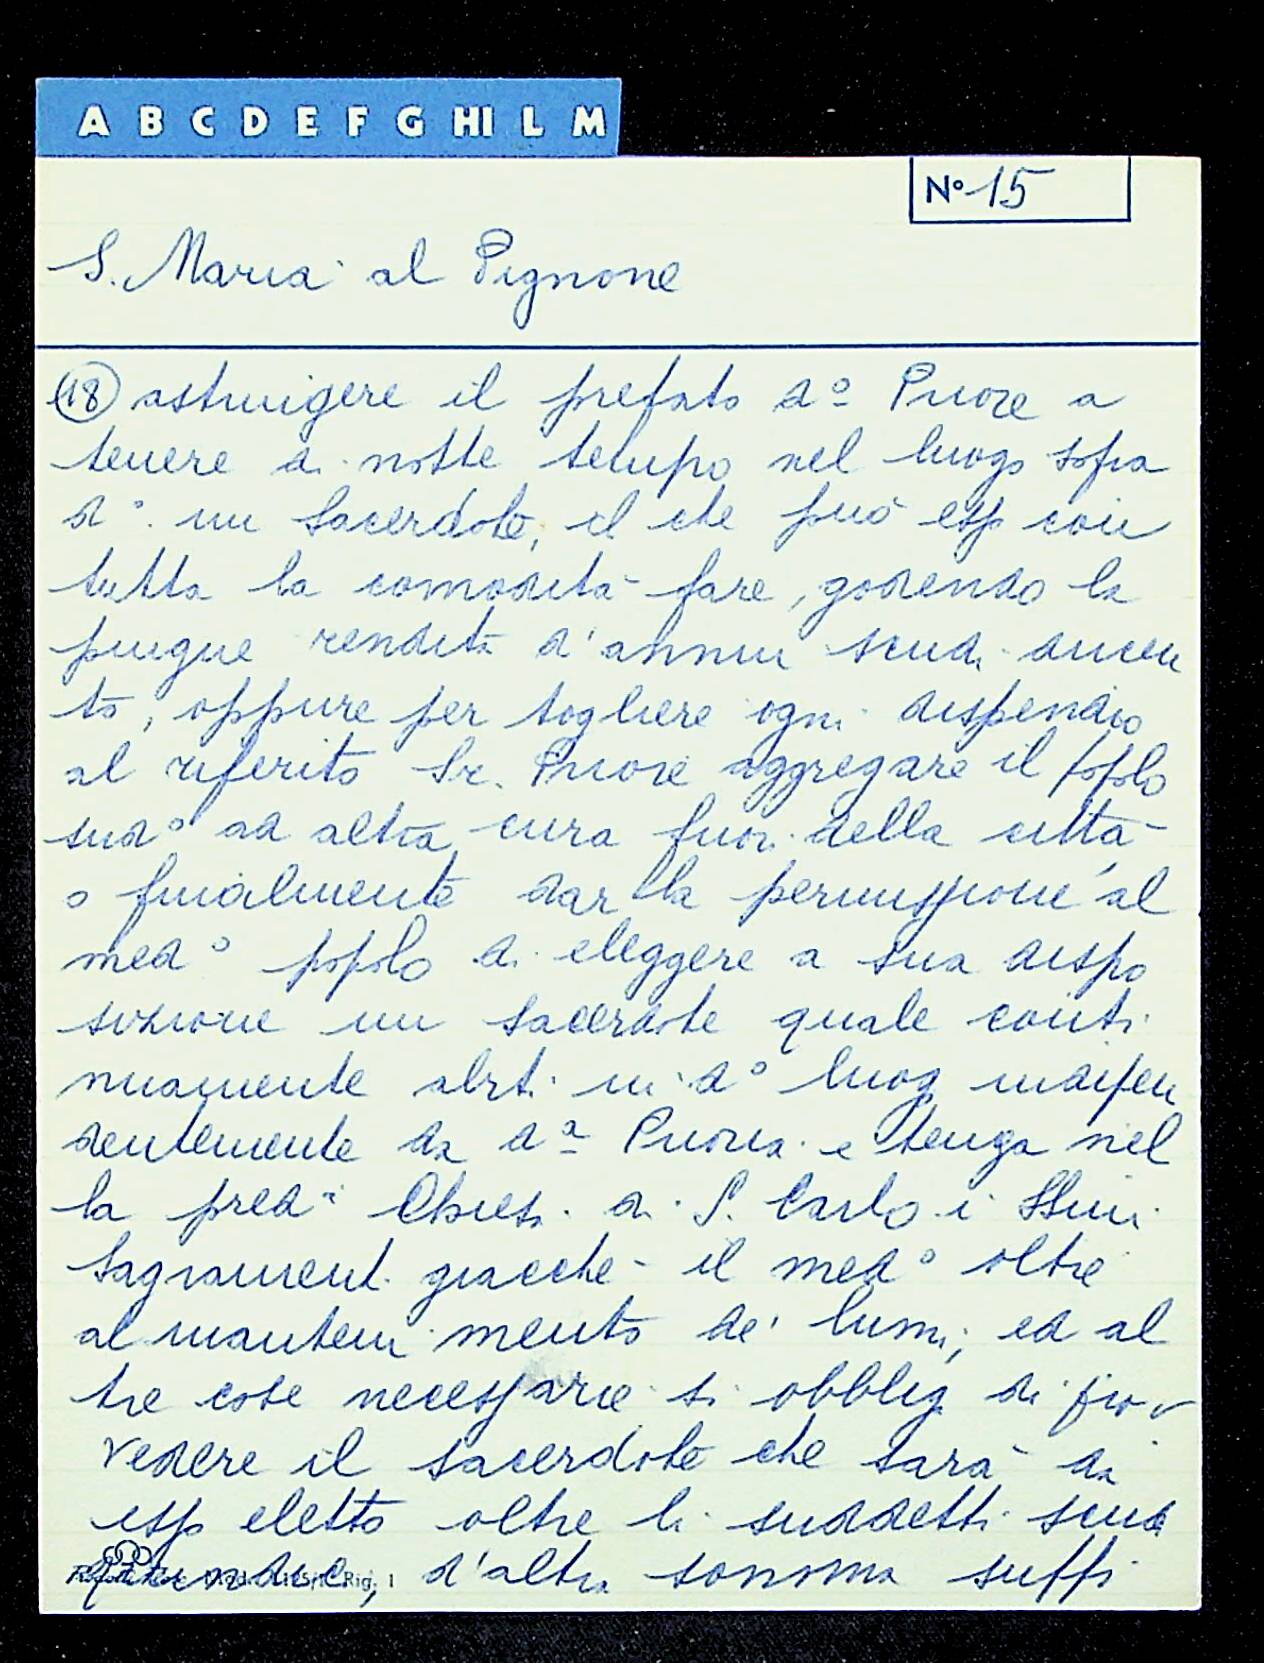 A B C D E F G HI L M
N° 15
S. Maria al Pignone
(18) astringere il prefato d° Priore a
tenere di notte tempo nel luogo sopra
d°. un Sacerdote, il che può esso con
tutta la comodità fare, godendo la
pingue rendita d'annui scudi ducen
to, oppure per togliere ogni dispendio
al riferito Sr. Priore aggregare il popolo
sud° ad altra cura fuori della città
o finalmente dar la permissione al
med° popolo di eleggere a sua dispo
sizione un sacerdote quale conti
nuamente abiti in d° luog indipen
dentemente da dª Prioria e tenga nel
la predª Chiesa di S. Carlo i SSmi
Sagramenti giacche il med° oltre
al mantenimento de' lumi, ed al
tre cose necessarie si obblig di prov
vedere il sacerdote che sarà da
esso eletto oltre li suddetti scudi
quindici, d'altra somma suffi